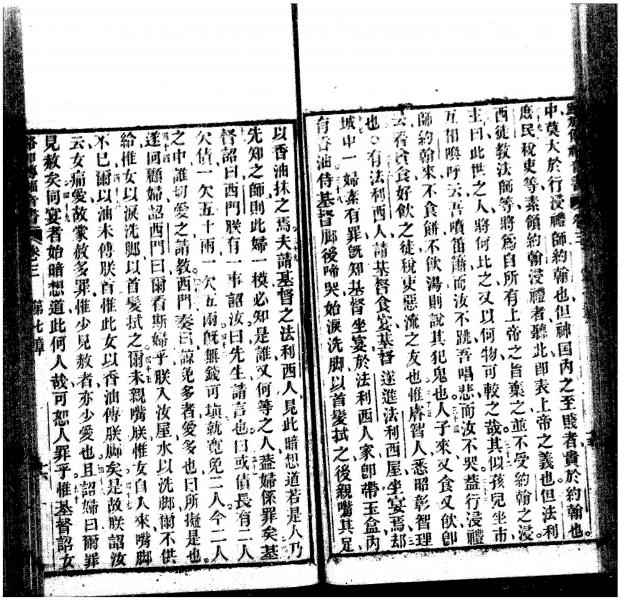 中莫大於行浸禮師約翰也但神国内之至賤者貴於約翰也
庶民稅吏等素領約翰浸禮者聽此卽表上帝之義也但法利
西徒教法師等將爲自所有上帝之旨棄之並不受約翰之浸
主曰此世之人將何比之又以何物可較之哉其似孩兒坐市
互相喚呼云吾噴笛簫而汝不跳吾唱悲而汝不哭蓋行浸禮
師約翰來不食餅不飲湯則說其犯鬼也人子來又食又飲卽
云看貪食好飲之徒稅吏惡流之友也惟睿智人悉昭彰智理
也有法利西人請基督食宴基督遂進法利西屋坐宴焉却
城中一婦素有罪既知基督坐宴於法利西人家卽帶玉盒内
有香油侍基督脚後啼哭始淚洗脚以首髮拭之後親嘴其足
以香油抹之焉夫請基督之法利西人見此暗想道若是人乃
先知之師則此婦一模必知是誰又何等之人蓋婦係罪矣基
督詔曰西門朕有一事詔汝曰先生請言也曰或債長有二人
欠債一欠五十兩一欠五百兩既無錢可塡就寬免二人今二人
之中誰切愛之請教西門奏曰諒免多者愛多也曰所擬是也
遂回顧婦詔西門曰爾看斯婦乎朕入汝屋水以洗脚爾不供
給惟女以淚洗脚以首髮拭之爾未親嘴朕惟女自入來嘴脚
不已爾以油未傅朕首惟此女以香油傅朕脚矣是故朕詔汝
云女痛愛故蒙赦多罪惟少見赦者亦少愛也且詔婦曰爾罪
見赦矣同宴者始暗想道此何人哉可恕人罪乎惟基督詔女
路加傳福音書 卷三 第七章